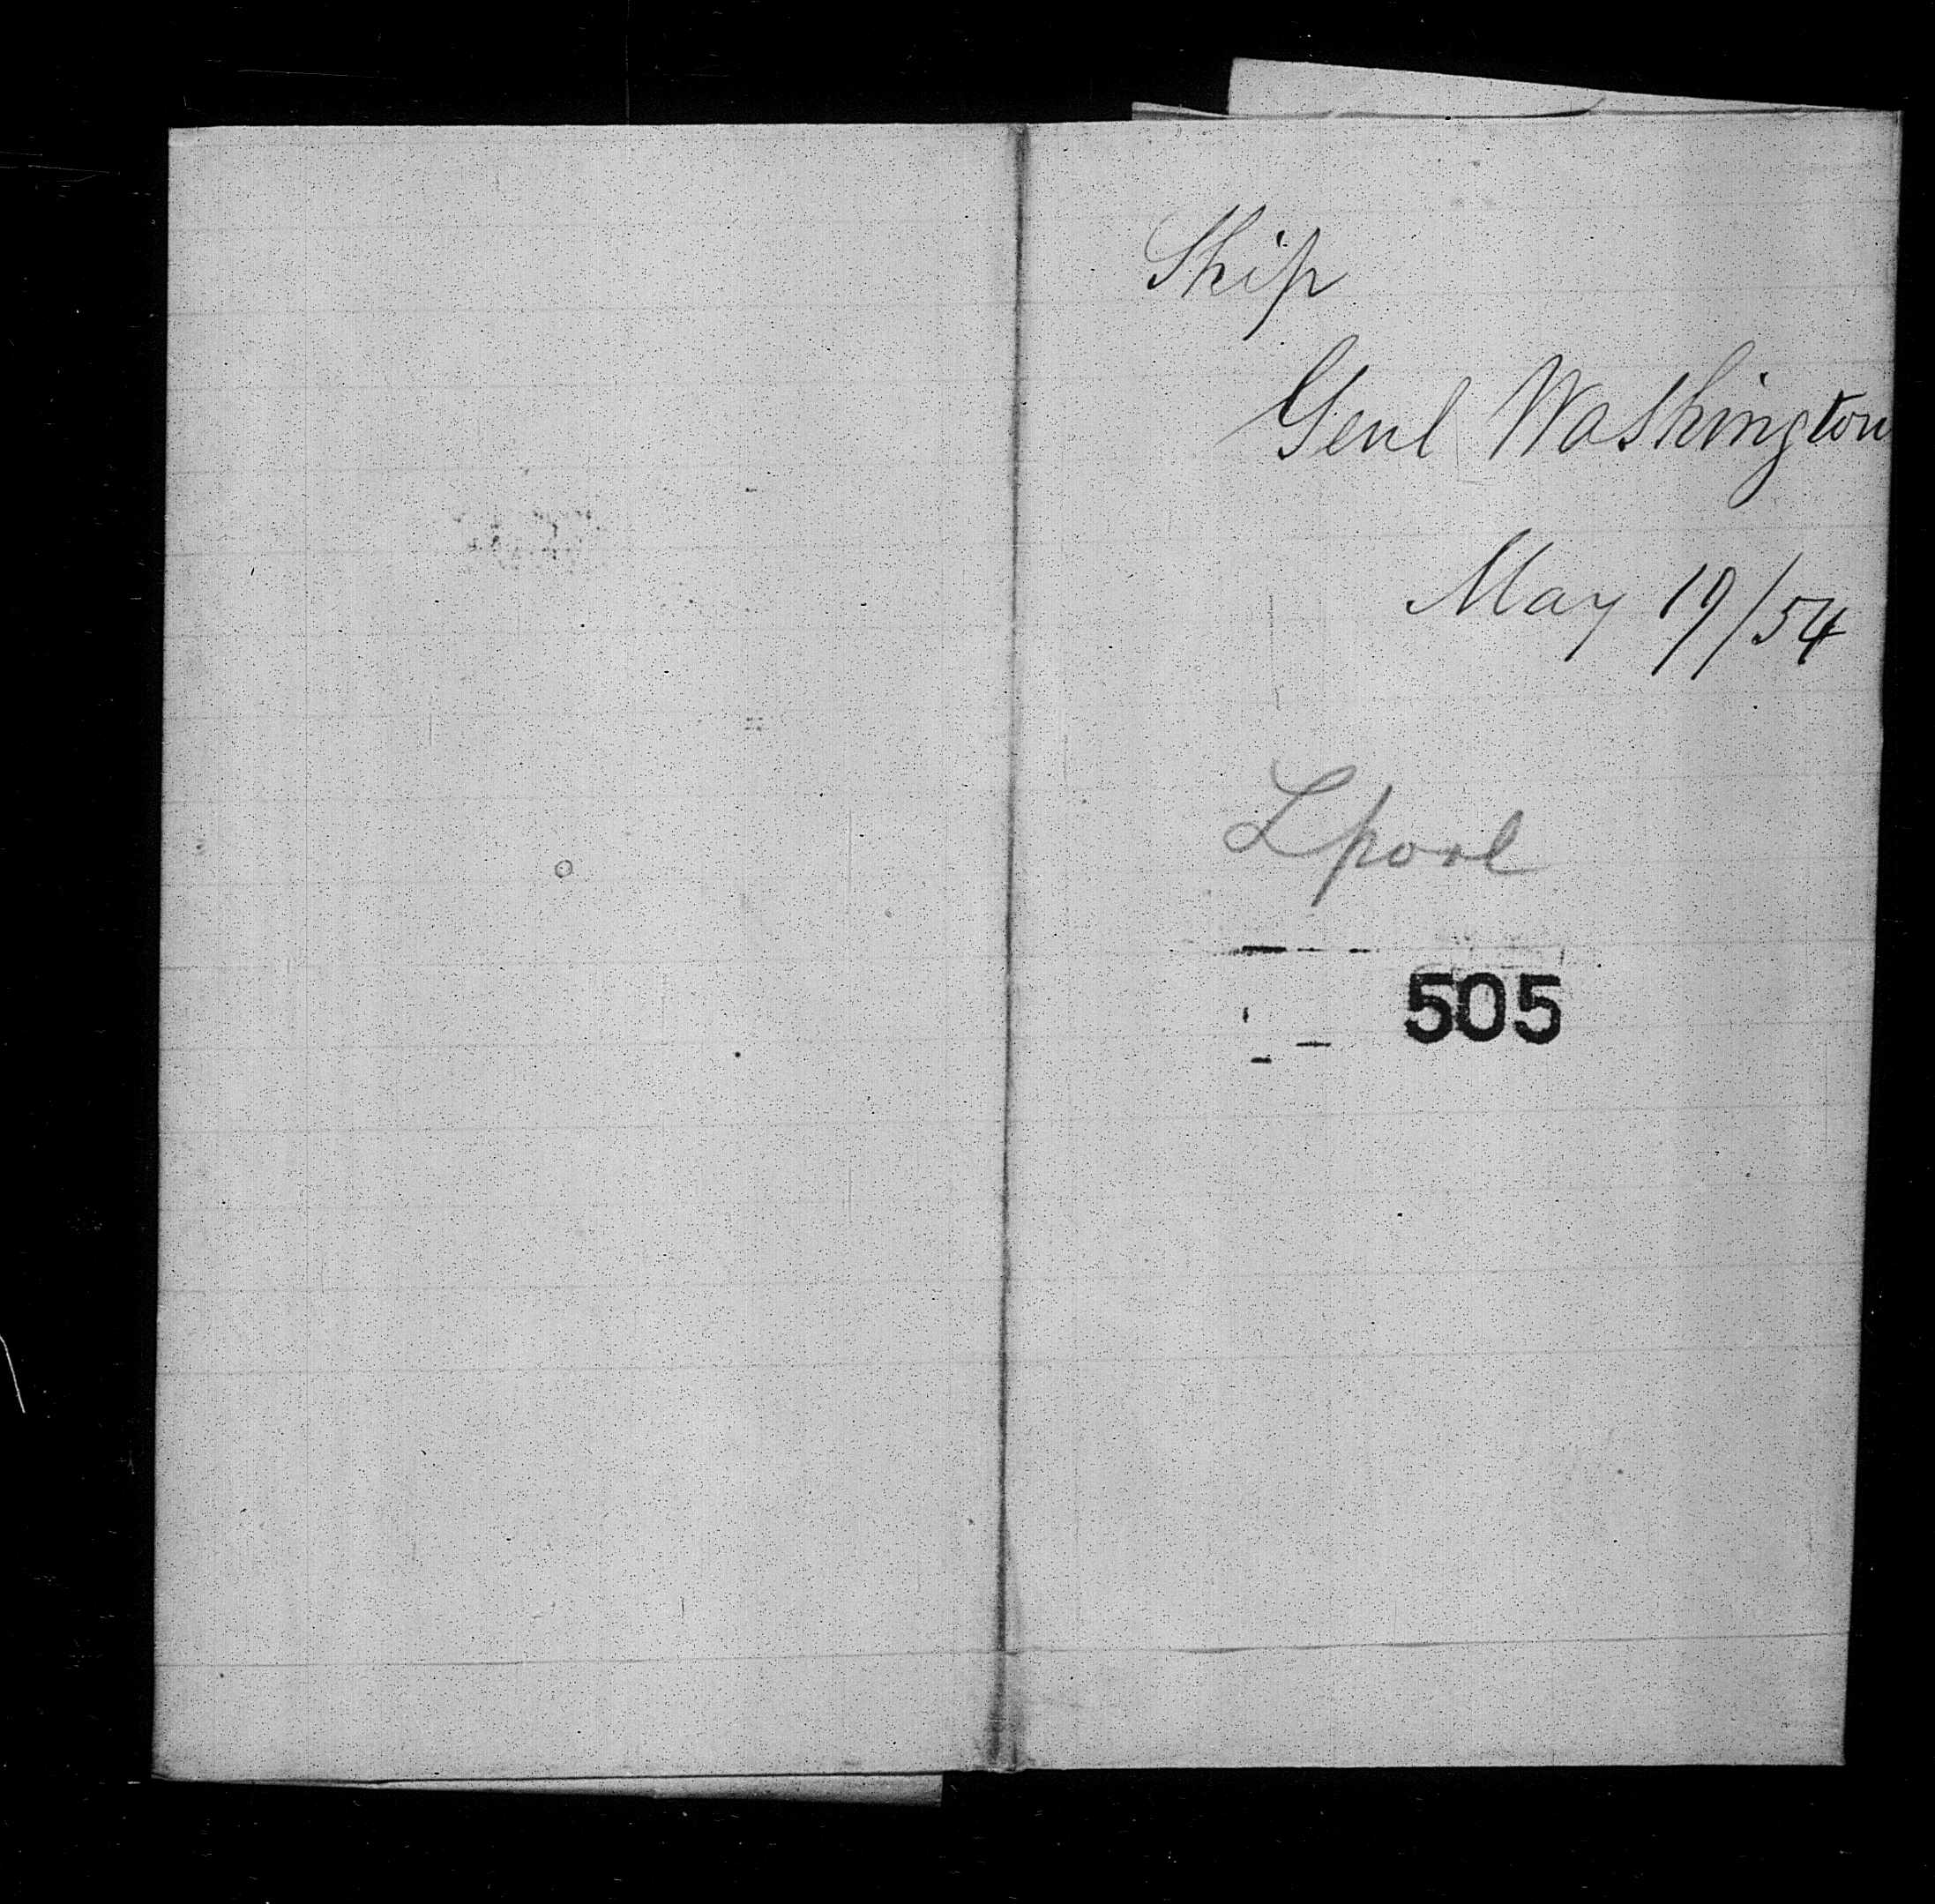 Ship
Genl Washington
May 19/54
Lpool
505